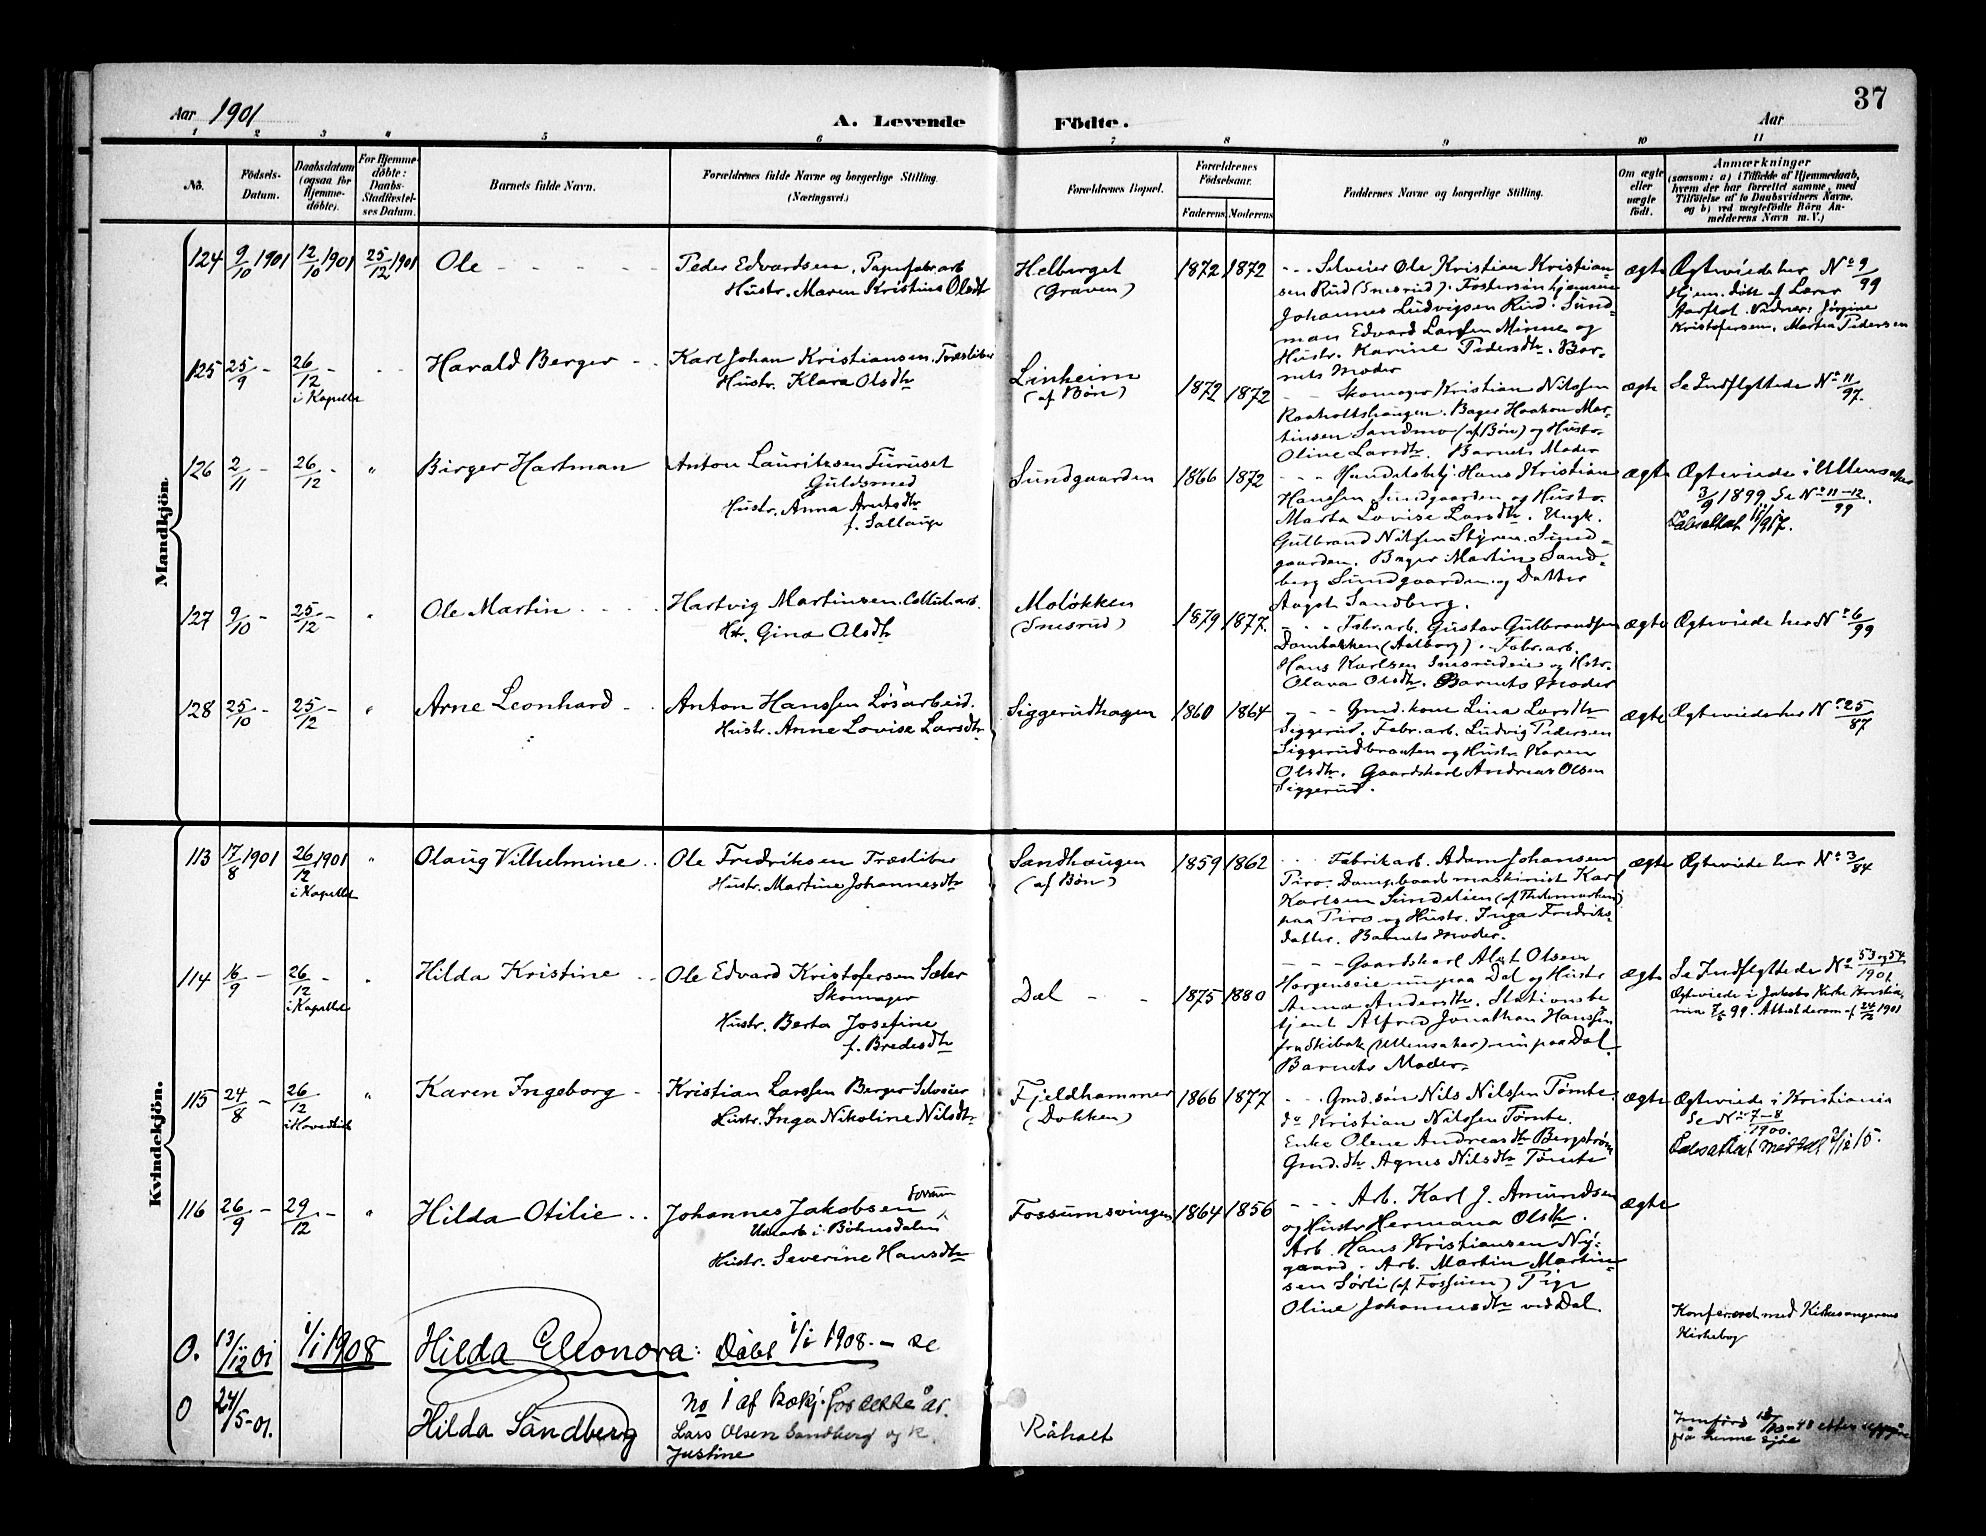 37
Aar 1901
A. Levende Födte.
Aar
1 2 3 4 5 6 7 8 9 10 11
No.
Födsels-Datum.
Daabsdatum (ogsaa for Hjemme-döbte).
For Hjemme-döbte: Daabs-Stadfæstel-ses Datum.
Barnets fulde Navn.
Forældrenes fulde Navne og borgerlige Stilling. (Næringsvei.)
Forældrenes Bopæl.
Forældrenes Födselsaar.
Faderens Moderens
Faddernes Navne og borgerlige Stilling.
Om ægte eller uægte födt.
Anmærkninger
(saasom: a) i Tilfælde af Hjemmedaab, hvem der har forrettet samme, med Tilföielse af to Daabsvidners Navne, og b) ved uægtefödte Börn An-melderens Navn m. V.)
Mandkjön.
124 9/10 1901 12/10 1901 25/12 1901 Ole
Peder Edvardsen, Papirfabr.arb.
Hustr. Maren Kristine Olsdtr
Helberget
(Graven)
1872 1872
Selveier Ole Kristian Kristian-
sen Rud (Snesrud). Fostersøn hjemme
Johannes Ludvigsen Rud. Sund-
man Edvard Larssen Minne og
Hustr. Karine Pedersdtr. Bar-
nets Moder
ægte
Ægteviede her No 9/99
Hjem. døbt af Lærer
Aarflot. Vidner: Jørgine
Kristofersen, Martea Pedersen
125 25/9 - 26/12 - i Kapellet
Harald Berger
Karl Johan Kristiansen. Træsliber
Hustr. Klara Olsdtr
Linheim
(af Bön)
1872 1872
Skomager Kristian Nilssen
Raaholtshaugen. Bager Haakon Mar-
tinsen Sandmo (af Bøn) og Hustr.
Oline Larsdtr. Barnets Moder
ægte
Se Indflyttede No 11/97.
126 2/11 - 26/12 - "
Birger Hartman
Anton Lauritzsen Furuset
Guldsmed
Hustr. Anna Arntsdtr
f. Sallaug
Sundgaarden
1866 1872
Handelsbtj. Hans Kristian
Hanssen Sundgaarden og Hustr.
Marta Lovise Larsdtr. Ungk.
Gulbrand Nilssen Styren. Sund-
gaarden. Bager Martin Sand-
berg Sundgaarden og Datter
Aagot Sandberg.
ægte
Ægteviede i Ullensaker
3/9 1899 Se No 11-12/99
127 9/10 - 25/12 - "
Ole Martin
Hartvig Martinsen. Cellul.arb.
Hstr. Gina Olsdtr
Moløkken
(Snesrud)
1879 1877.
Fabr.arb. Gustav Gulbrandsen
Dambakken (Aalborg). Fabr.arb.
Hans Karlsen Snesrudeie og Hstr.
Olava Olsdtr. Barnets Moder
ægte
Ægteviede her No 6/99
128 25/10 - 25/12 - "
Arne Leonhard
Anton Hanssen Lösarbeid.
Hustr. Anne Lovise Larsdtr
Siggerudhagen
1860 1864
Gmd. kone Lina Larsdtr
Siggerud. Fabr.arb. Ludvig Pedersen
Siggerudbraaten og Hustr. Karen
Olsdtr. Gaardskarl Andreas Olsen
Siggerud.
ægte
Ægteviede her No 25/87
Kvindekjön.
113 17/8 1901 26/12 1901 i Kapellet "
Olaug Vilhelmine
Ole Fredriksen Træsliber
Hustr. Martine Johannesdtr
Sandhaugen
(af Bøn)
1859 1862
Fabrikarb. Adam Johansen
Piro. Dampbaadmaskinist Karl
Karlsen Sundelien (af Thelemarken)
paa Piro og Hustr. Inga Fredriks-
datter. Barnets Moder.
ægte
Ægteviede her No 3/84
114 16/9 - 26/12 - i Kapellet "
Hilda Kristine
Ole Edvard Kristofersen Sæter
Skomager
Hustr. Berta Josefine
f. Bredesdtr
Dal
1875 1880
Gaardskarl Alet Olsen
Horgenseie nu paa Dal og Hustr
Anna Andersdtr. Stationsbe
tjent Alfred Jonathan Hanssen
fra Skibak (Ullensaker) nu paa Dal.
Barnets Moder
ægte
Se Indflyttede No 53 og 54/1901
Ægteviede i Jakobs Kirke Kristia-
nia 7/5 99. Attest derom af 24/12 1901
115 24/8 - 26/12 "
Karen Ingeborg
Kristian Larssen Berger Selveier
Hustr. Inga Nikoline Nilsdtr
Fjeldhammer
(Dokken)
1866 1877
Gmd.søn Nils Nilssen Tømte.
do Kristian Nilssen Tømte.
Enke Olene Andreasdtr Bergstrøm
Gmd.dtr Agnes Nilsdtr Tømte
ægte
Ægteviede i Kristiania
Se No 7-8/1900.
116 26/9 - 29/12 - "
Hilda Otilie
Johannes Jakobsen Fossum
Udearb. i Böhnsdalen
Hustr. Severine Hansdtr
Fossumsvingen
1864 1856
Arb. Karl J. Amundsen
og Hustr Hermana Olsdtr.
Arb. Hans Kristiansen Ny-
gaard. Arb. Martin Martin-
sen Sörli (af Fossum) Pige
Oline Johannesdtr ved Dal.
ægte
Konfereret med Kirkesangerens
Kirkebog
0. 13/12 01 1/1 1908 Hilda Eleonora: Døbt 1/1 1908. - se
no 1 af kvkj. for dette år.
0 24/5-01. Hilda Sandberg
Lars Olsen Sandberg og k.
Justine
Råholt
Innførd